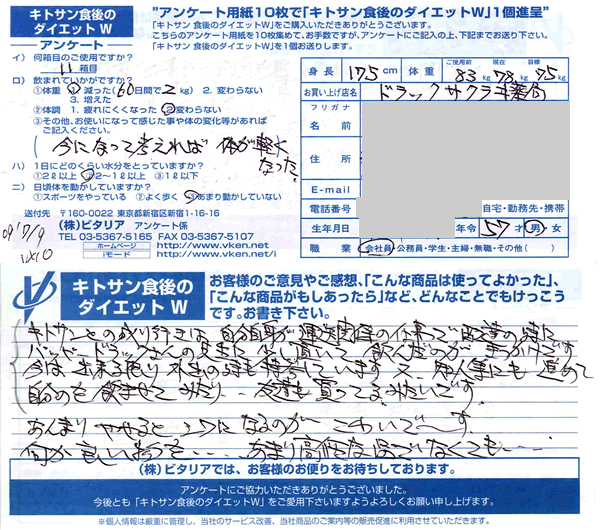 キトサン食後の
ダイエット W
アンケート
"アンケート用紙10枚で「キトサン食後のダイエットW」1個進呈"
「キトサン 食後のダイエットW」をご購入いただきありがとうございます。
こちらのアンケート用紙を10枚集めて、お手数ですが、アンケートにご記入の上、下記までお送り下さい。
「キトサン 食後のダイエットW」を1個お送りします。
イ）何箱目のご使用ですか？
11 箱目
ロ）飲まれていかがですか？
①体重 1. 減った(60日間で 2 kg) 2. 変わらない
3. 増えた
②体調 1. 疲れにくくなった 2. 変わらない
③その他、お使いになって感じた事や体の変化等があれば
ご記入ください。
(今になって考えれば 体が軽く
なった)
ハ）1日にどのくらい水分をとっていますか？
①2ℓ以上 ②2〜1ℓ以上 ③1ℓ以下
ニ）日頃体を動かしていますか？
①スポーツをやっている ②よく歩く ③あまり動かしていない
送付先 〒160-0022 東京都新宿区新宿1-16-16
(株)ビタリア アンケート係
TEL 03-5367-5165 FAX 03-5367-5107
ホームページ http://www.vken.net/
iモード http://www.vken.net/i
09'7/9
身長 175cm 体重 ご使用前 83kg 現在 78kg 目標 75kg
お買い上げ店名 ドラックサクラ
フリガナ
名前
住所
E-mail
電話番号 自宅・勤務先・携帯
生年月日 年令 57才 男・女
職業 会社員・公務員・学生・主婦・無職・その他( )
キトサン食後の
ダイエット W
お客様のご意見やご感想、「こんな商品は使ってよかった」、
「こんな商品がもしあったら」など、どんなことでもけっこう
です。お書き下さい。
キトサンとの 自分自身が の仕事で の時に
ドラックさんの 飲んだのが です
今は も しています 又 知人等にも 進めて
飲ませてみたり 友達も買ってるみたいです
あんまり ヤセると になるのが こわいで〜す
何か あまり 高価な でなくても
(株)ビタリアでは、お客様のお便りをお待ちしております。
アンケートにご協力いただきありがとうございました。
今後とも「キトサン食後のダイエットW」をご愛用下さいますようよろしくお願い申し上げます。
※個人情報は厳重に管理し、当社のサービス改善、当社商品のご案内等の販売促進に利用させていただきます。